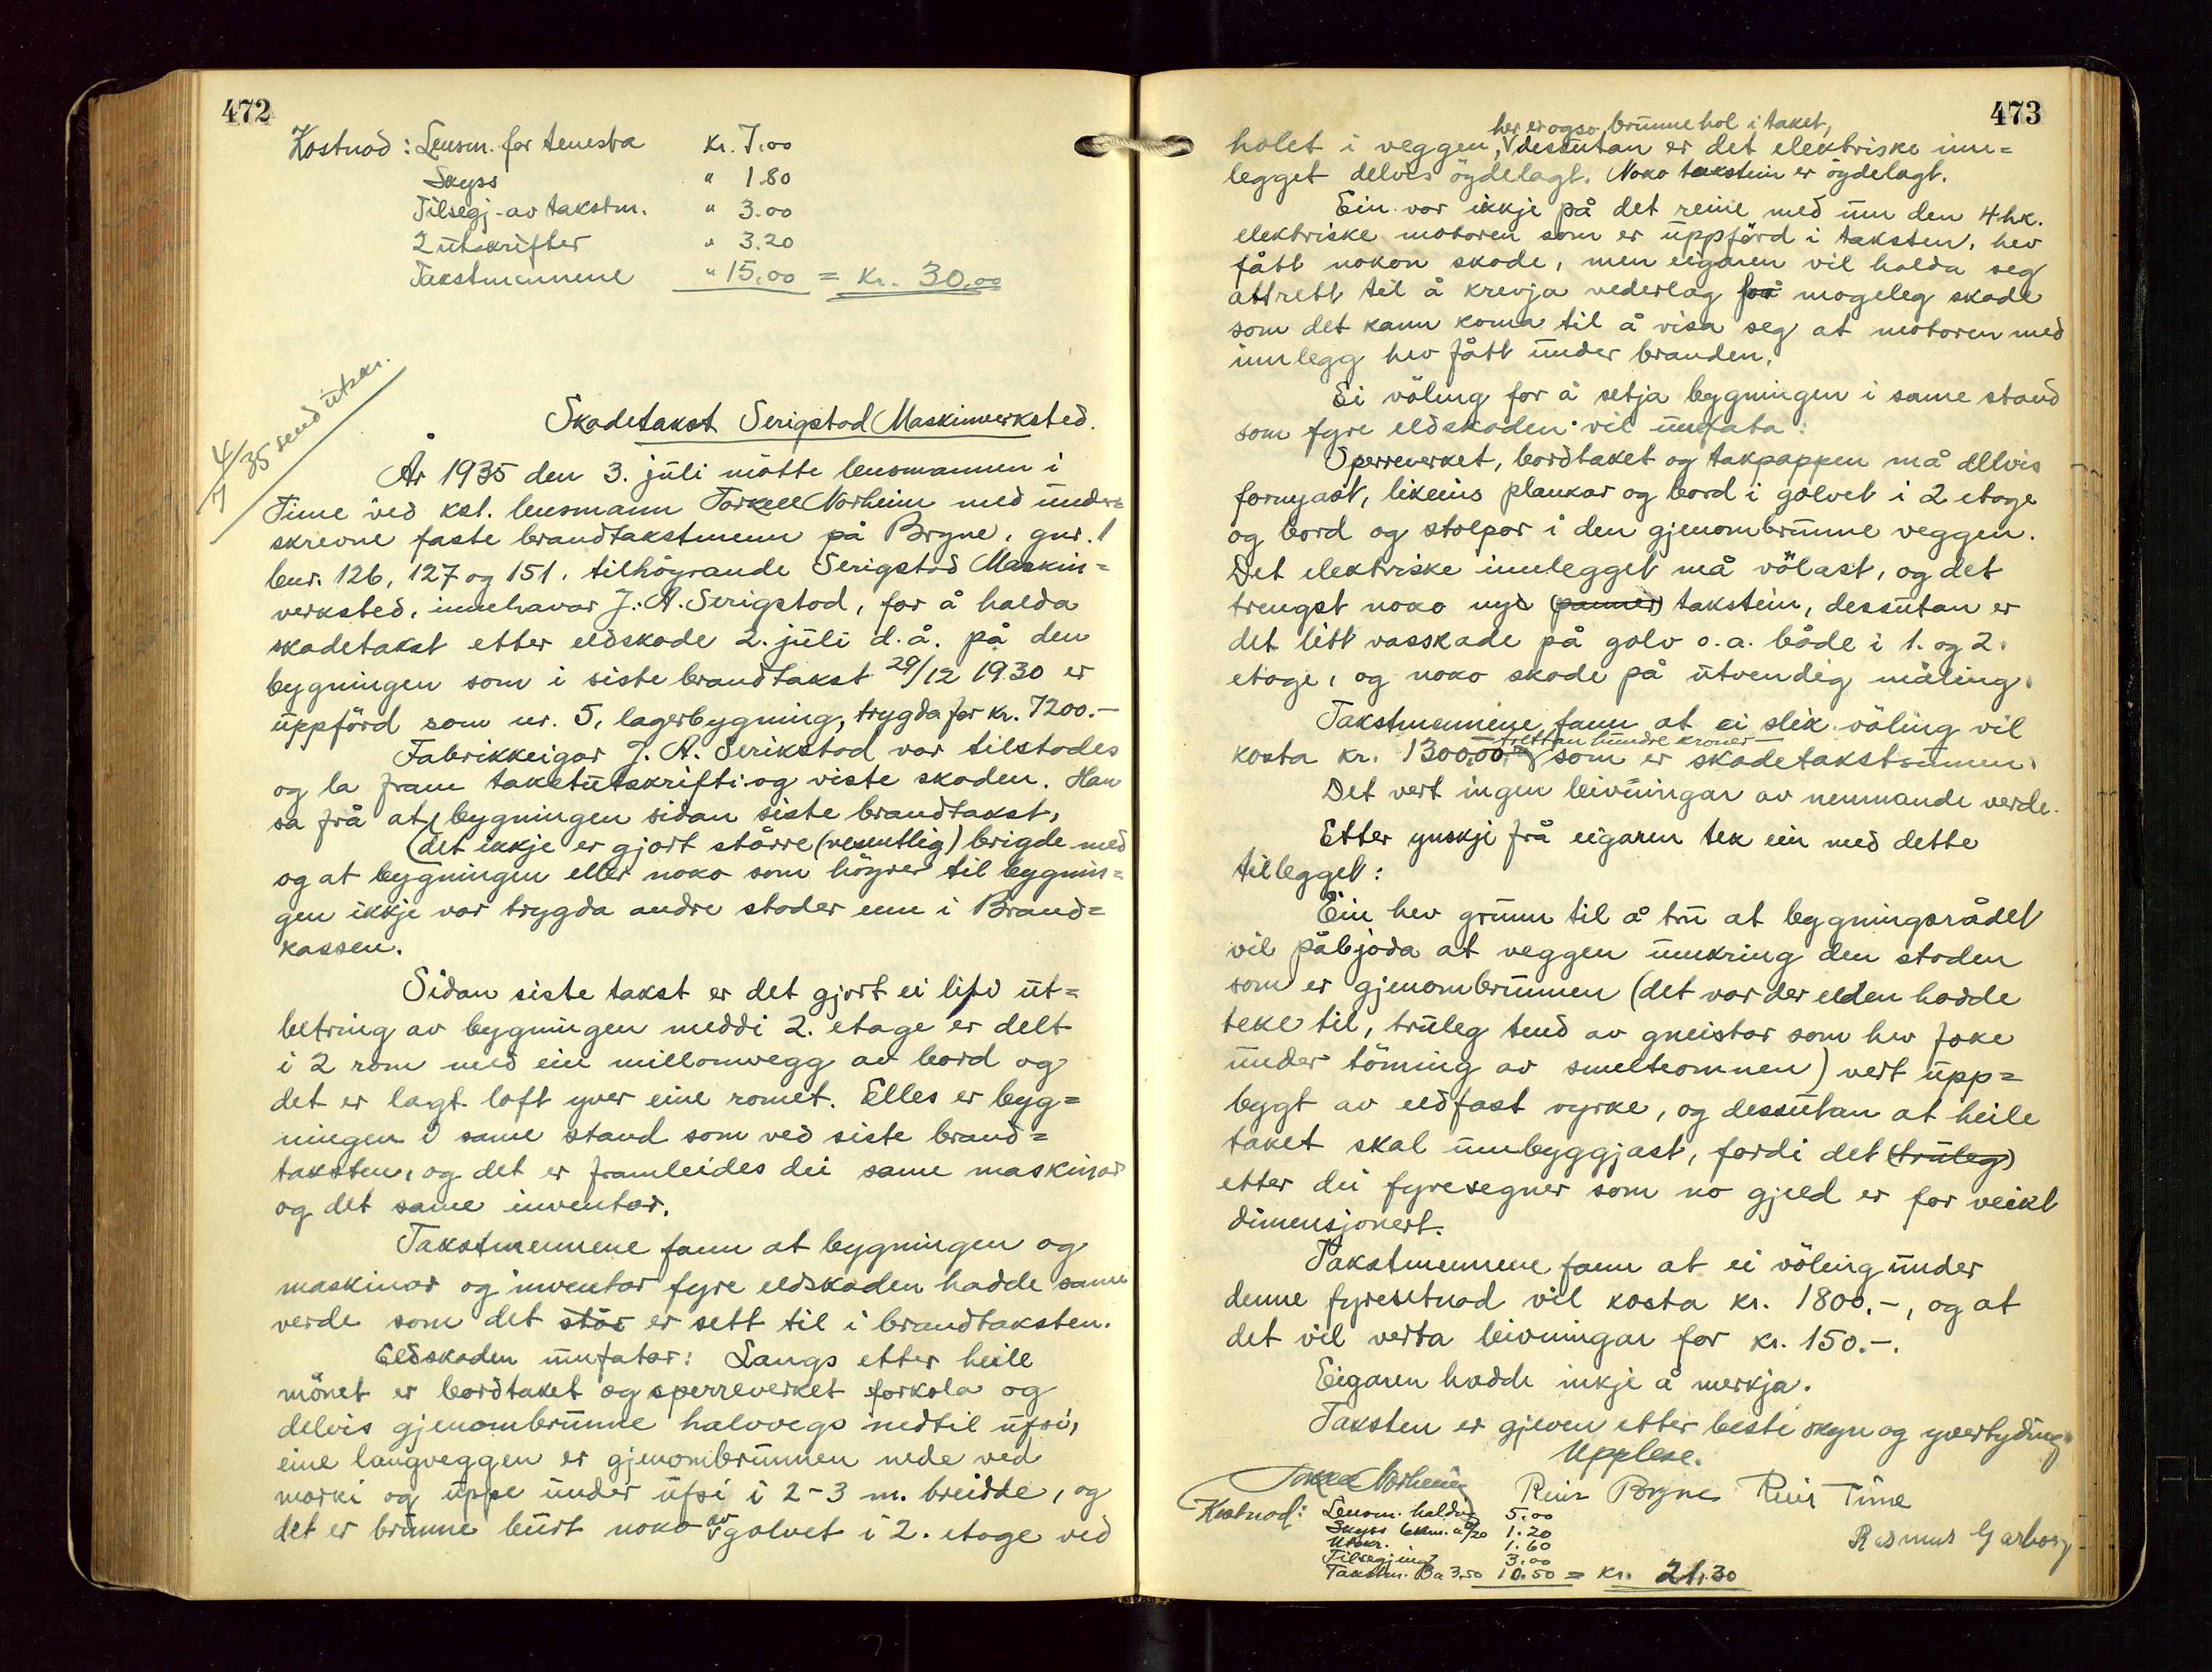 472
Kostnad: Lensm. for tenesta kr. 7.00
Skyss " 1.80
Tilsegj. av takstm. " 3.00
2 utskrifter " 3.20
Takstmennene " 15.00 = Kr. 30.00
4/7 35 send utskr.
Skadetakst Serigstad Maskinverksted.
År 1935 den 3. juli møtte lensmannen i
Time ved kst. lensmann Torkell Norheim med under=
skrevne faste brandtakstmenn på Bryne, gnr. 1
bnr. 126, 127 og 151, tilhøyrande Serigstad Maskin=
verksted, innehavar J. A. Serigstad, for å halda
skadetakst etter eldskade 2. juli d.å. på den
bygningen som i siste brandtakst 29/12 1930 er
uppførd som nr. 5, lagerbygning, trygda for kr. 7200.-
Fabrikkeigar J. A. Serikstad var tilstades
og la fram takstutskrift og viste skaden. Han
sa frå at bygningen sidan siste brandtakst,
(det ikkje er gjort større (vesentlig) brigde med
og at bygningen eller noko som høyrer til bygnin=
gen ikkje var trygda andre stader enn i Brand=
kassen.
Sidan siste takst er det gjort ei liti ut=
betring av bygningen med di 2. etage er delt
i 2 rom med ein millomvegg av bord og
det er lagt loft yver eine romet. Elles er byg=
ningen i same stand som ved siste brand=
taksten, og det er framleides dei same maskinar
og det same inventar.
Takstmennene fann at bygningen og
maskinar og inventar fyre eldskaden hadde same
verde som det står er sett til i brandtaksten.
Eldskaden umfatar: Langs etter heile
mønet er bordtaket og sperreverket forkola og
delvis gjenombrunne halvvegs nedtil ufsi,
eine langveggen er gjenombrunnen nede ved
marki og uppe under ufsi i 2-3 m. breidde, og
det er brunne burt noko av golvet i 2. etage ved
473
her er ogso brunne hol i taket,
holet i veggen, dessutan er det elektriske inn=
legget delvis øydelagt. Noko takstein er øydelagt.
Ein var ikkje på det reine med um den 4 hk.
elektriske motoren som er uppførd i taksten, hev
fått nokon skade, men eigaren vil halda seg
attrett til å krevja vederlag for mogeleg skade
som det kann koma til å visa seg at motoren med
innlegg hev fått under branden.
Ei vøling for å setja bygningen i same stand
som fyre eldskaden vil umfata:
Sperreverket, bordtaket og takpappen må delvis
fornyast, likeins plankar og bord i golvet i 2 etage
og bord og stolpar i den gjenombrunne veggen.
Det elektriske innlegget må vølast, og det
trengst noko nye (panner) takstein, dessutan er
det litt vasskade på golv o.a. både i 1. og 2.
etage, og noko skade på utvendig måling.
Takstmennene fann at ei slik vøling vil
-trettan hundre kroner-
kosta kr. 1300,00, som er skadetakstsumen.
Det vert ingen leivningar av nemnande verde.
Etter ynskje frå eigaren tek ein med dette
tillegget:
Ein hev grunn til å tru at bygningsrådet
vil påbjoda at veggen umkring den staden
som er gjenombrunnen (det var der elden hadde
teke til, truleg tend av gneistar som hev foke
under tøming av smelteomnen) vert upp=
bygt av eldfast vyrke, og dessutan at heile
taket skal umbyggjast, fordi det (truleg)
etter dei fyresegner som no gjeld er for veikt
dimensjonert.
Takstmennene fann at ei vøling under
denne fyresetnad vil kosta kr. 1800.-, og at
det vil verta leivningar for kr. 150.-.
Eigaren hadde inkje å merkja.
Taksten er gjeven etter beste skyn og yvertyding.
Upplese.
Torkell Norheim Reier Bryne Reier Time
Rasmus Garborg
Kostnad: Lensm. haldn. 5.00
Skyss 6 km. a 0/20 1.20
Utskr. 1.60
Tilsegjing 3.00
Takstm. 3 a 3.50 10.50 = kr. 21.30